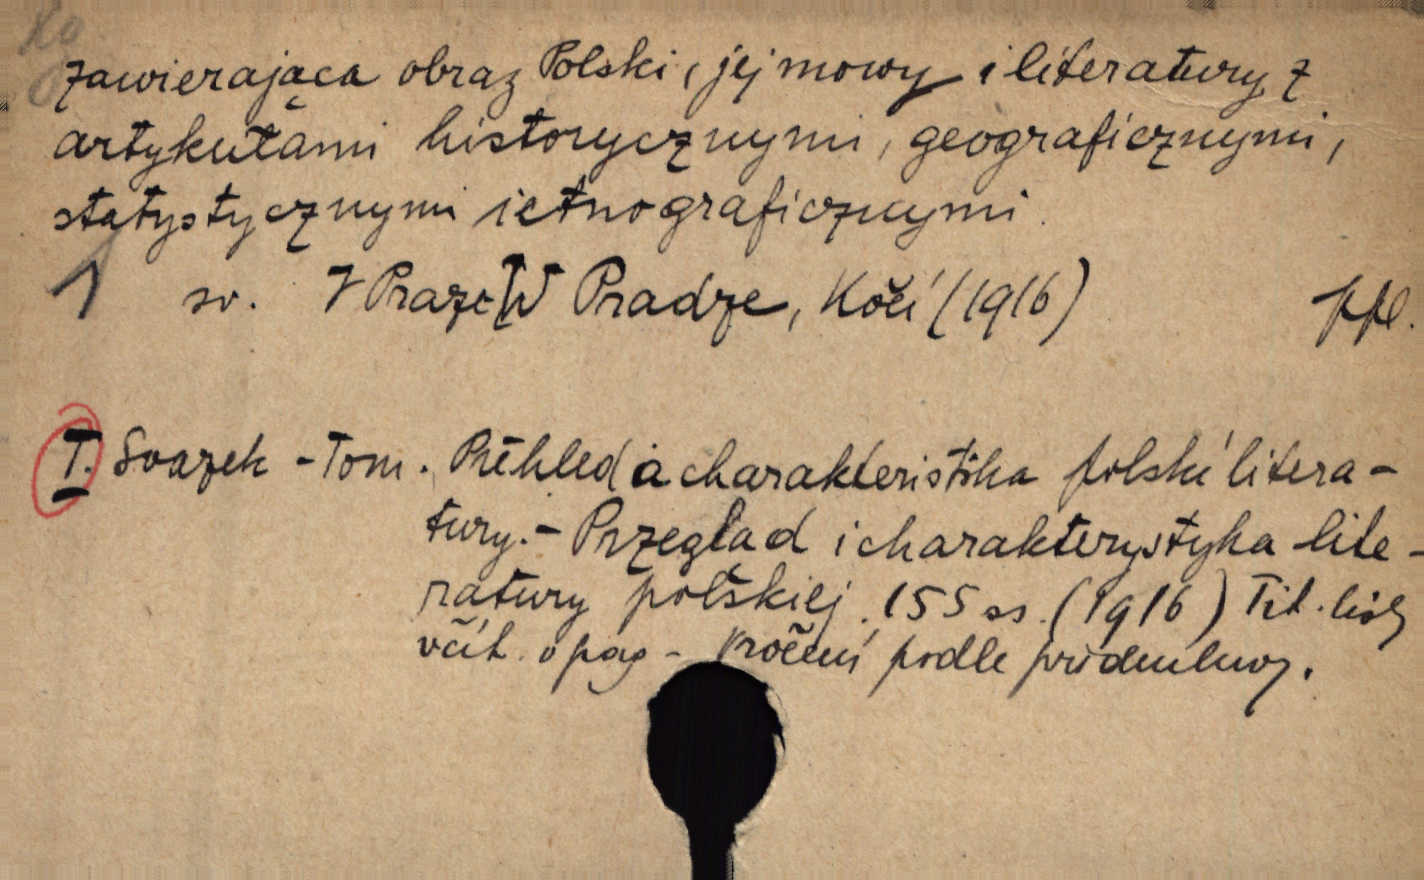 zawierająca obraz Polski, jej mowy i literatury z
artykułami historycznymi, geograficznymi,
statystycznymi i etnograficznymi.
1 sv. V Praze W Pradze, Kočí (1916)
I. Svazek - Tom. Přehled a charakteristika polské litera-
tury. - Przegląd i charakterystyka lite-
ratury polskiej. 155 ss. (1916) Tit. listy
včít. v pag - Ročení podle